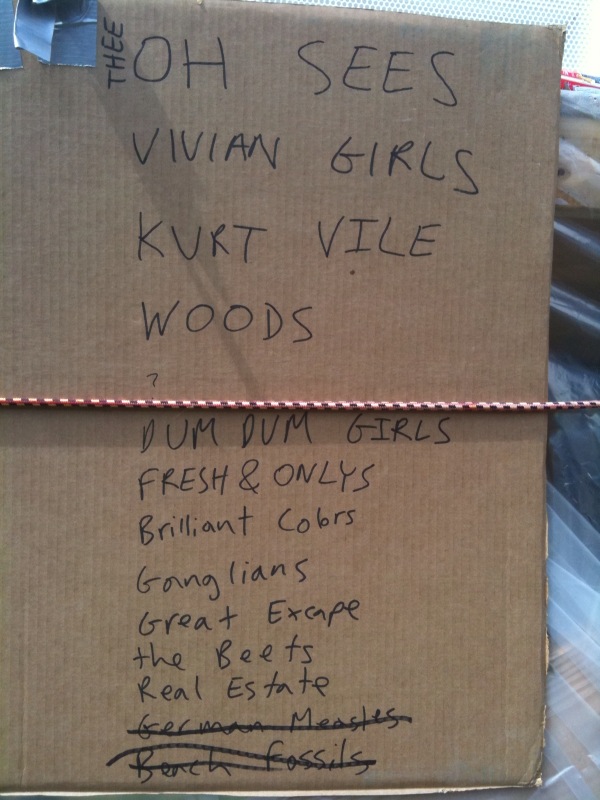 THEE OH SEES
VIVIAN GIRLS
KURT VILE
WOODS
?
DUM DUM GIRLS
FRESH & ONLYS
Brilliant Colors
Ganglians
Great Excape
the Beets
Real Estate
German Measles
Beach Fossils